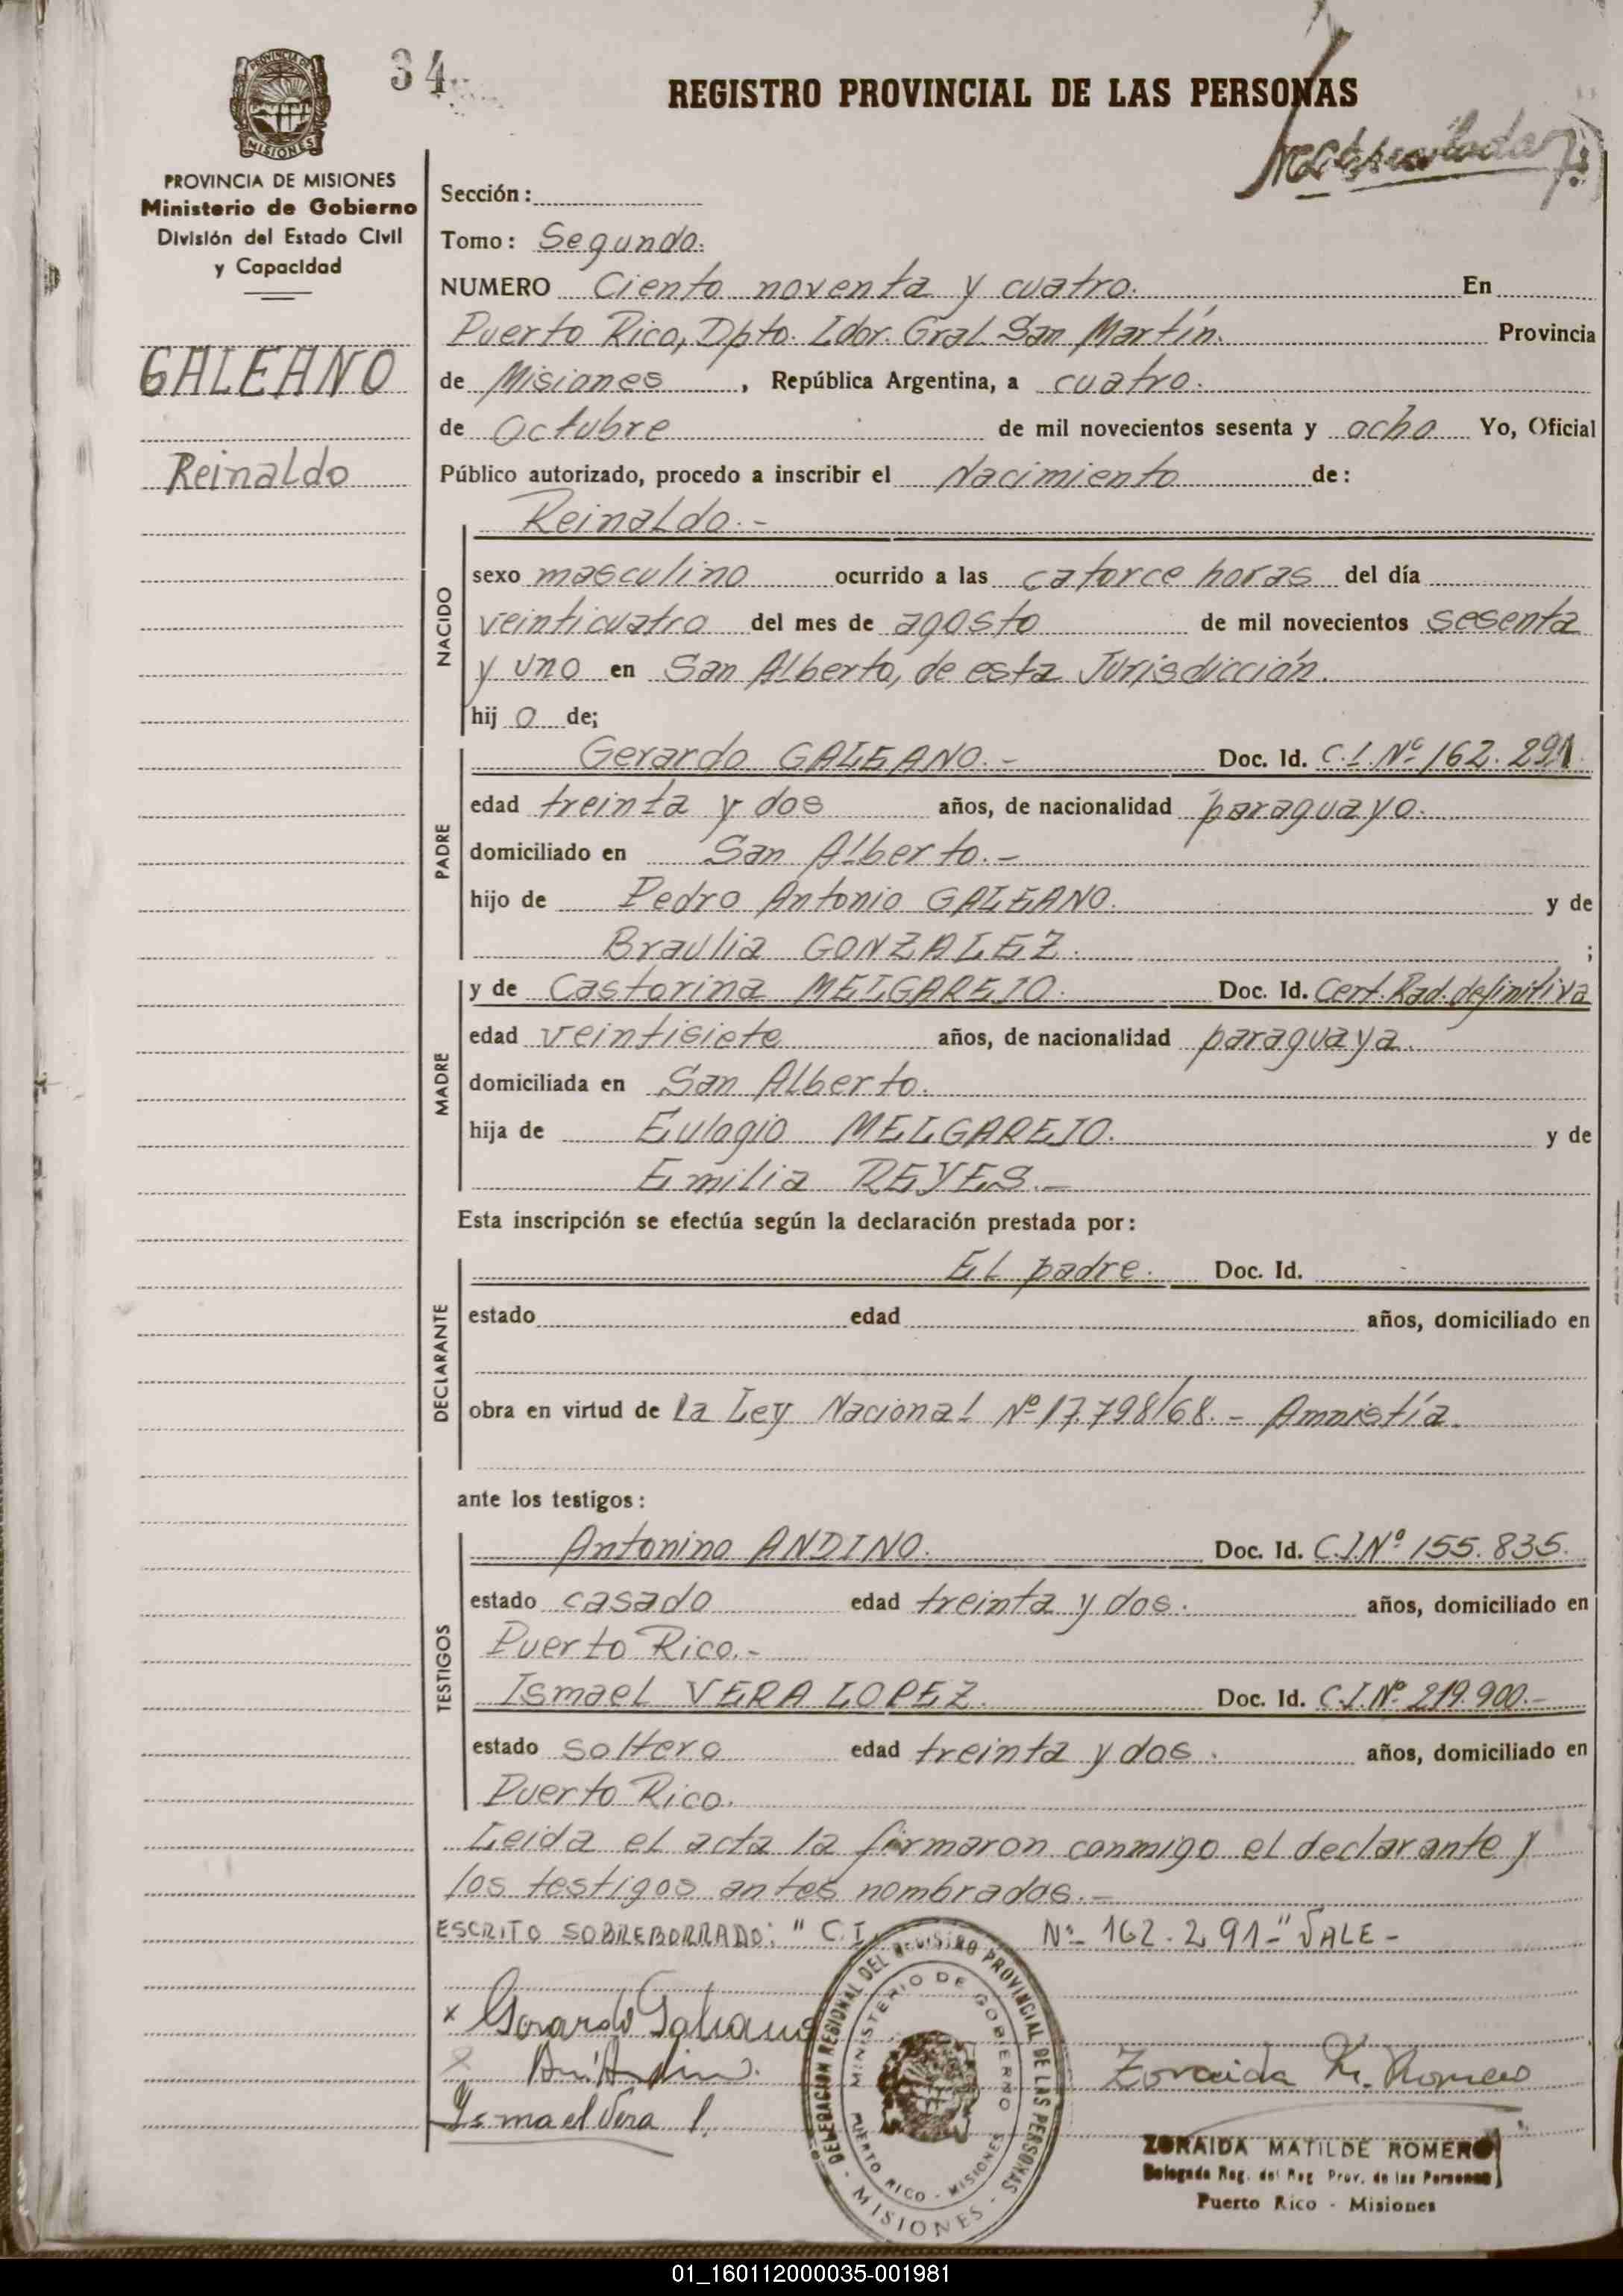 34
REGISTRO PROVINCIAL DE LAS PERSONAS
PROVINCIA DE MISIONES
MISIONES
PROVINCIA DE MISIONES
Ministerio de Gobierno
División del Estado Civil
y Capacidad
GALEANO
Reinaldo
Sección:
Tomo: Segundo.
NUMERO Ciento noventa y cuatro. En
Puerto Rico, Dpto. Ldor. Gral San Martín. Provincia
de Misiones, República Argentina, a cuatro.
de Octubre de mil novecientos sesenta y ocho Yo, Oficial
Público autorizado, procedo a inscribir el Nacimiento de:
Reinaldo.-
NACIDO
sexo masculino ocurrido a las catorce horas del día
veinticuatro del mes de agosto de mil novecientos sesenta
y uno en San Alberto, de esta Jurisdicción.
hij o de;
PADRE
Gerardo GALEANO.- Doc. Id. C.I. Nº 162.291
edad treinta y dos años, de nacionalidad paraguayo.
domiciliado en San Alberto.-
hijo de Pedro Antonio GALEANO. y de
Braulia GONZALEZ. ;
MADRE
y de Castorina MELGAREJO. Doc. Id. Cert. Rad. definitiva
edad veintisiete años, de nacionalidad paraguaya.
domiciliada en San Alberto.
hija de Eulogio MELGAREJO. y de
Emilia REYES.-
Esta inscripción se efectúa según la declaración prestada por:
DECLARANTE
El padre. Doc. Id.
estado edad años, domiciliado en
obra en virtud de la Ley Nacional Nº 17.798/68.- Amnistía.
ante los testigos:
TESTIGOS
Antonino ANDINO. Doc. Id. C.I.Nº 155.835.
estado casado edad treinta y dos. años, domiciliado en
Puerto Rico.-
Ismael VERA LOPEZ. Doc. Id. C.I.Nº 219.900.-
estado soltero edad treinta y dos. años, domiciliado en
Puerto Rico.
Leida el acta la firmaron conmigo el declarante y
los testigos antes nombrados.-
ESCRITO SOBREBORRADO: "C.I. Nº 162.291-" VALE-
x Gerardo Galeano
Ismael Vera L.
Zoraida M. Romero
DELEGACION REGIONAL DEL REGISTRO PROVINCIAL DE LAS PERSONAS
- MISIONES -
MINISTERIO DE GOBIERNO
PUERTO RICO - MISIONES
ZORAIDA MATILDE ROMERO
Delegada Reg. del Reg. Prov. de las Personas
Puerto Rico - Misiones
01_160112000035-001981